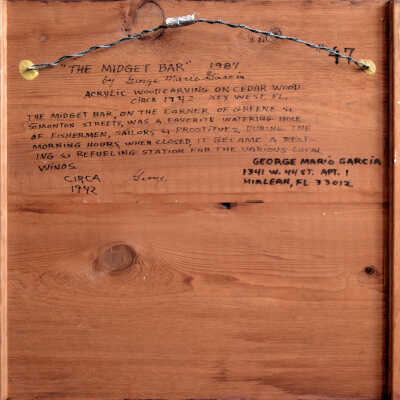 47
"THE MIDGET BAR" 1987
by George Mario Garcia
ACRYLIC WOODCARVING ON CEDAR WOOD
CIRCA 1942 KEY WEST, FL.
THE MIDGET BAR, ON THE CORNER OF GREENE &
SIMONTON STREETS, WAS A FAVORITE WATERING HOLE
OF FISHERMEN, SAILORS & PROSTITUTES, DURING THE
MORNING HOURS, WHEN CLOSED, IT BECAME A REST-
ING & REFUELING STATION FOR THE VARIOUS LOCAL
WINOS.
CIRCA
1942
GEORGE MARIO GARCIA
1341 W. 44 ST. APT. 1
HIALEAH, FL 33012